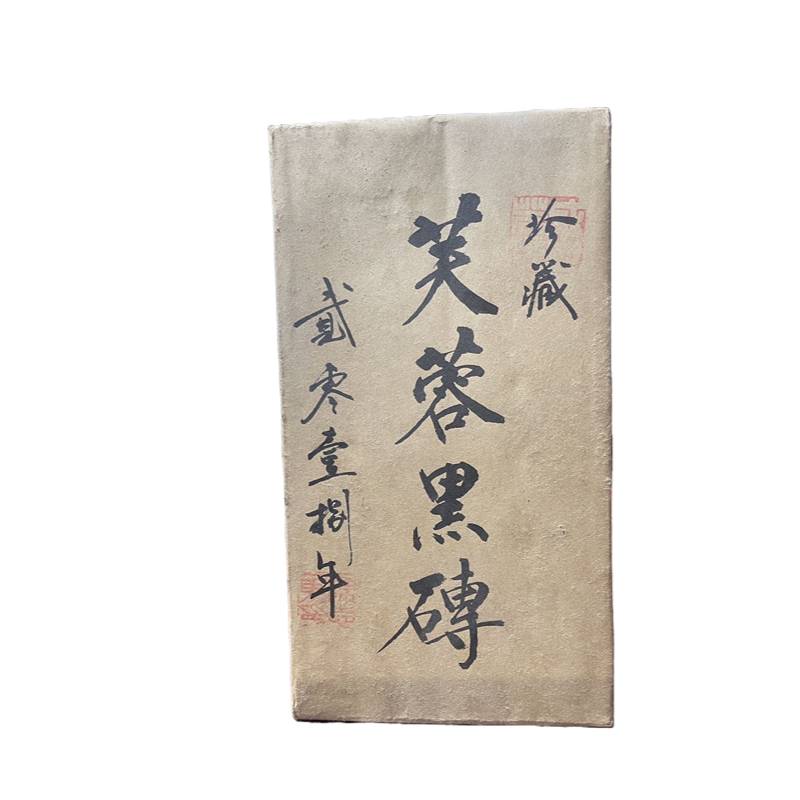 珍藏
芙蓉黑磚
貳零壹捌年